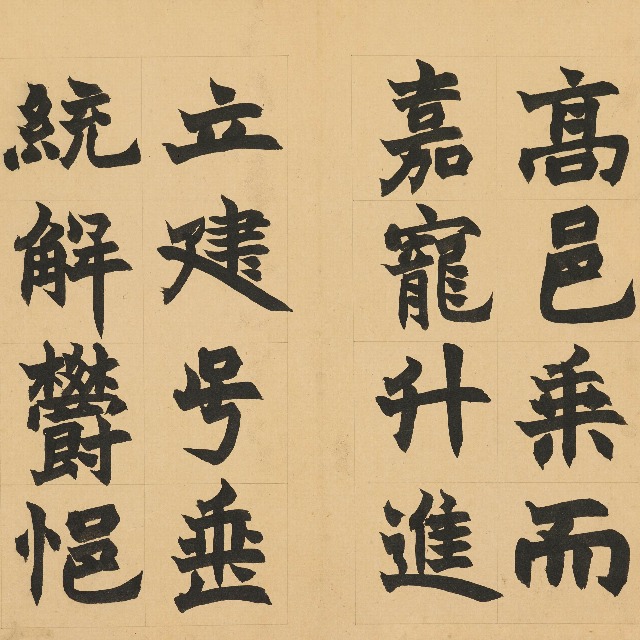 高邑乗而
嘉寵升進
立建号垂
統解欝悒